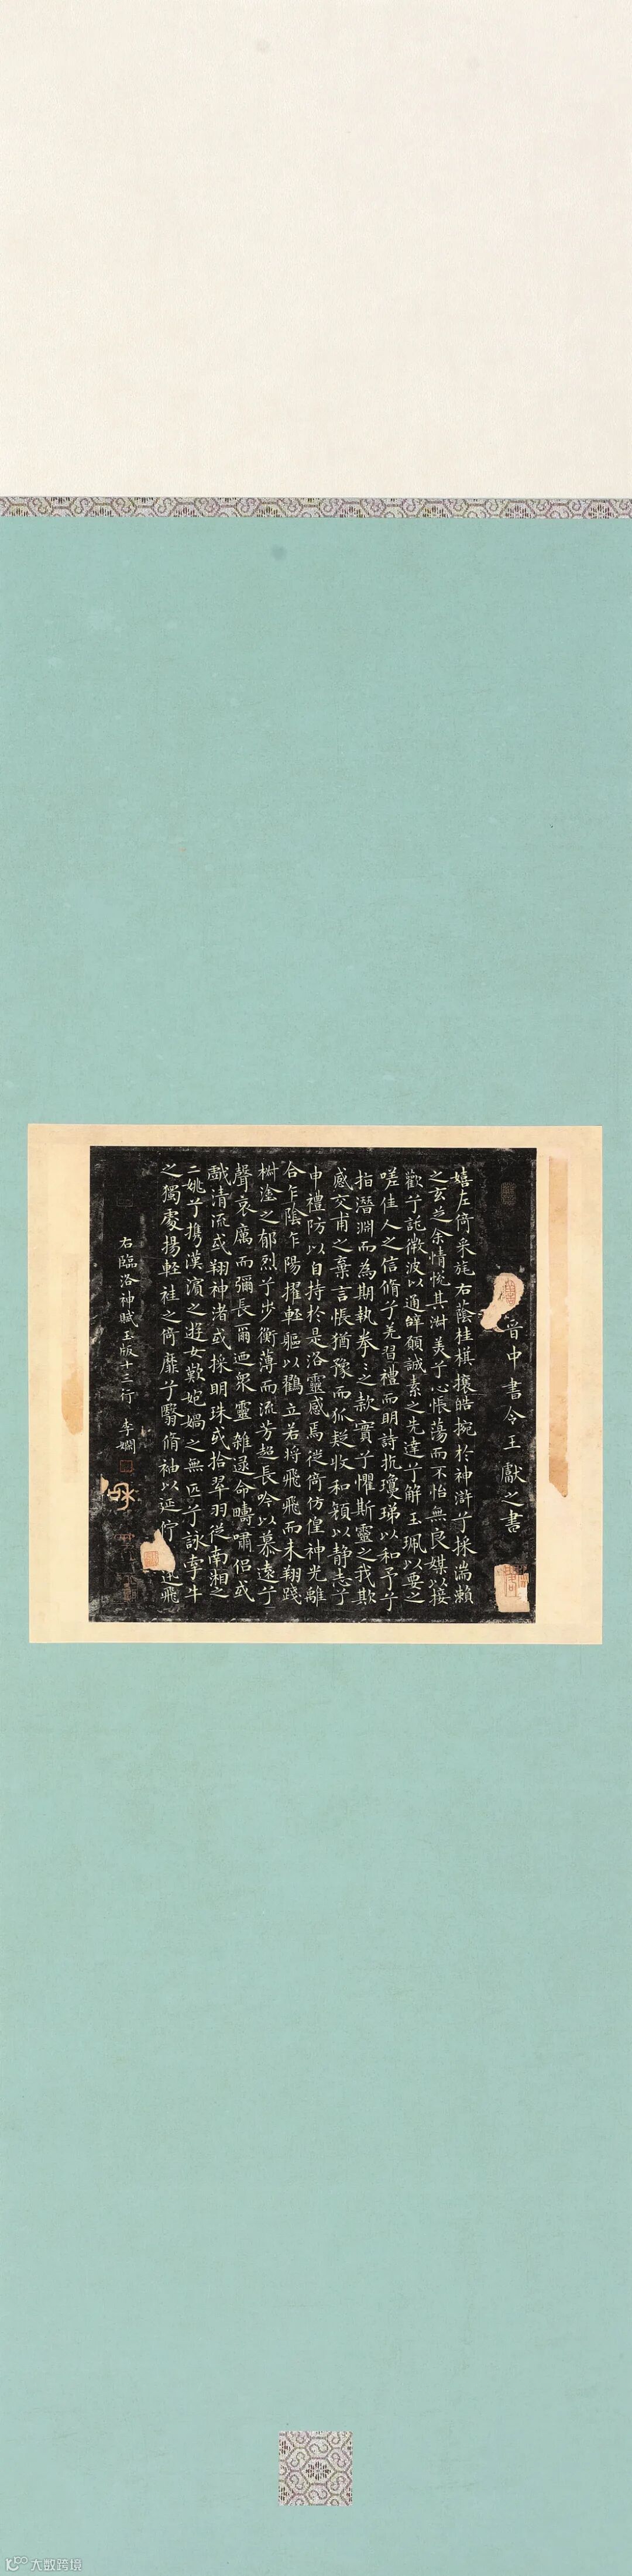 晉中書令王獻之書
嬉左倚采旄右蔭桂旗攘皓捥於神滸兮採湍瀨
之玄芝余情恱其淑美兮心悵蕩而不怡無良媒以接
歡兮託微波以通辭願誠素之先達兮解玉珮以要之
嗟佳人之信脩兮羌習禮而明詩抗瓊珶以和予兮
指潛淵而為期執拳之款實兮懼斯靈之我欺
感交甫之棄言悵猶豫而狐疑收和顏以静志兮
申禮防以自持於是洛靈感焉徙倚仿偟神光離
合乍陰乍陽擢輕軀以鶴立若将飛而未翔踐
椒塗之郁烈兮步衡薄而流芳超長吟以慕遠兮
聲哀厲而彌長爾迺衆靈雜遝命疇嘯侶或
戲清流或翔神渚或採明珠或拾翠羽従南湘之
二姚兮攜漢濱之遊女歎炮媧之無匹兮詠牽牛
之獨處揚輕袿之倚靡兮翳脩袖以延佇 迅飛
右臨洛神賦玉版十三行 李嫻
大数跨境